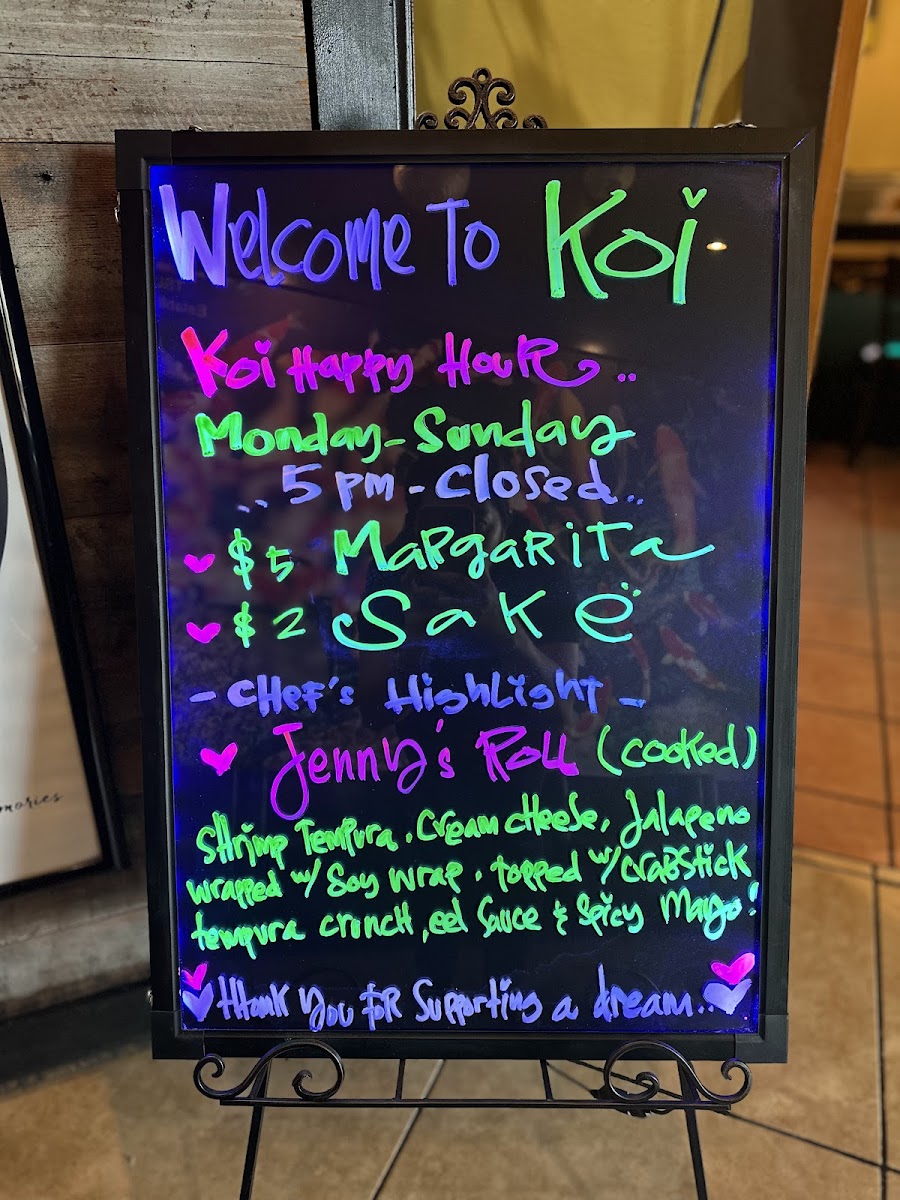 Welcome To Koi
Koi Happy Hour..
Monday-Sunday
..5 pm - Closed..
$5 Margarita
$2 Sake
- Chef's Highlight -
Jenny's Roll (cooked)
Shrimp Tempura, Cream cheese, Jalapeno
wrapped w/ Soy wrap, topped w/ crabstick
tempura crunch, eel Sauce & Spicy Mayo!
thank you for Supporting a dream..
mories